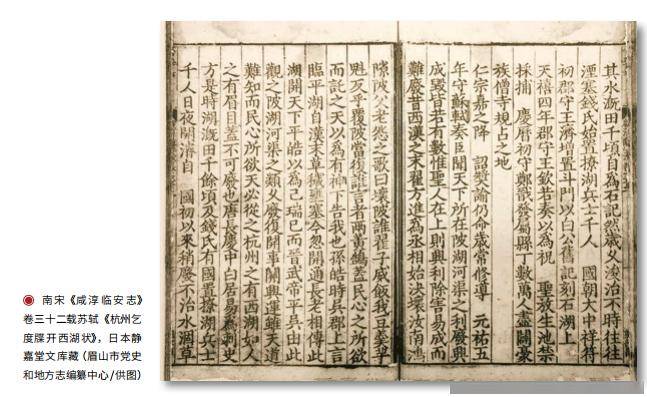 南宋《咸淳临安志》
卷三十二载苏轼《杭州乞
度牒开西湖状》，日本静
嘉堂文库藏（眉山市党史
和地方志编纂中心/供图）
其水溉田千頃自為石記然歲久浚治不時往往
湮塞錢氏始置撩湖兵士千人 國朝大中祥符
初郡守王濟增置斗門以白公舊記刻石湖上
天禧四年郡守王欽若奏以為祝 聖放生池禁
採捕 慶曆初守鄭戩發屬縣丁數萬人盡闢豪
族僧寺規占之地
仁宗嘉之降 詔奬諭仍命歲常修導 元祐五
年守蘇軾奏臣聞天下所在陂湖河渠之利廢興
成毀皆若有數惟聖人在上則興利除害易成而
難廢昔西漢之末翟方進為丞相始決壞汝南鴻
隙陂父老怨之歌曰壞陂誰翟子威飯我豆羹芋
魁反乎覆陂當復誰言者兩黃鵠蓋民心之所欲
而託之天以為有神下告我也孫皓時吳郡上言
臨平湖自漢末草穢壅塞今忽開通長老相傳此
湖開天下平皓以為己瑞已而晉武帝平吳由此
觀之陂湖河渠之類久廢復開事關興運雖天道
難知而民心所欲天必從之杭州之有西湖如人
之有眉目蓋不可廢也唐長慶中白居易為刺史
方是時湖溉田千餘頃及錢氏有國置撩湖兵士
千人日夜開濬自 國初以來稍廢不治水涸草